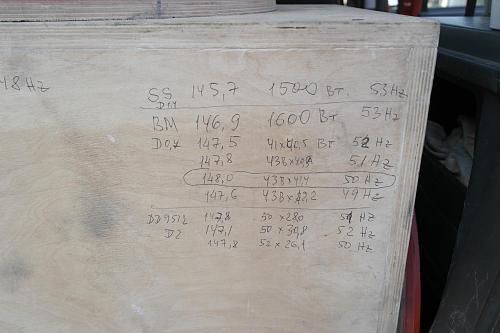 48Hz
SS 145,7 1500 Вт. 53Hz
D1,1
BM 146,9 1600 Вт 53Hz
D0,4 147,5 41x40,5 Вт 52 Hz
147,8 43В x 51Hz
148,0 43В x 41,4 50 Hz
147,6 43В x 42,2 49 Hz
DD9512 147,8 50 x 28,0 51 Hz
D2 147,1 50 x 30,8 52 Hz
147,8 52 x 26,1 50 Hz